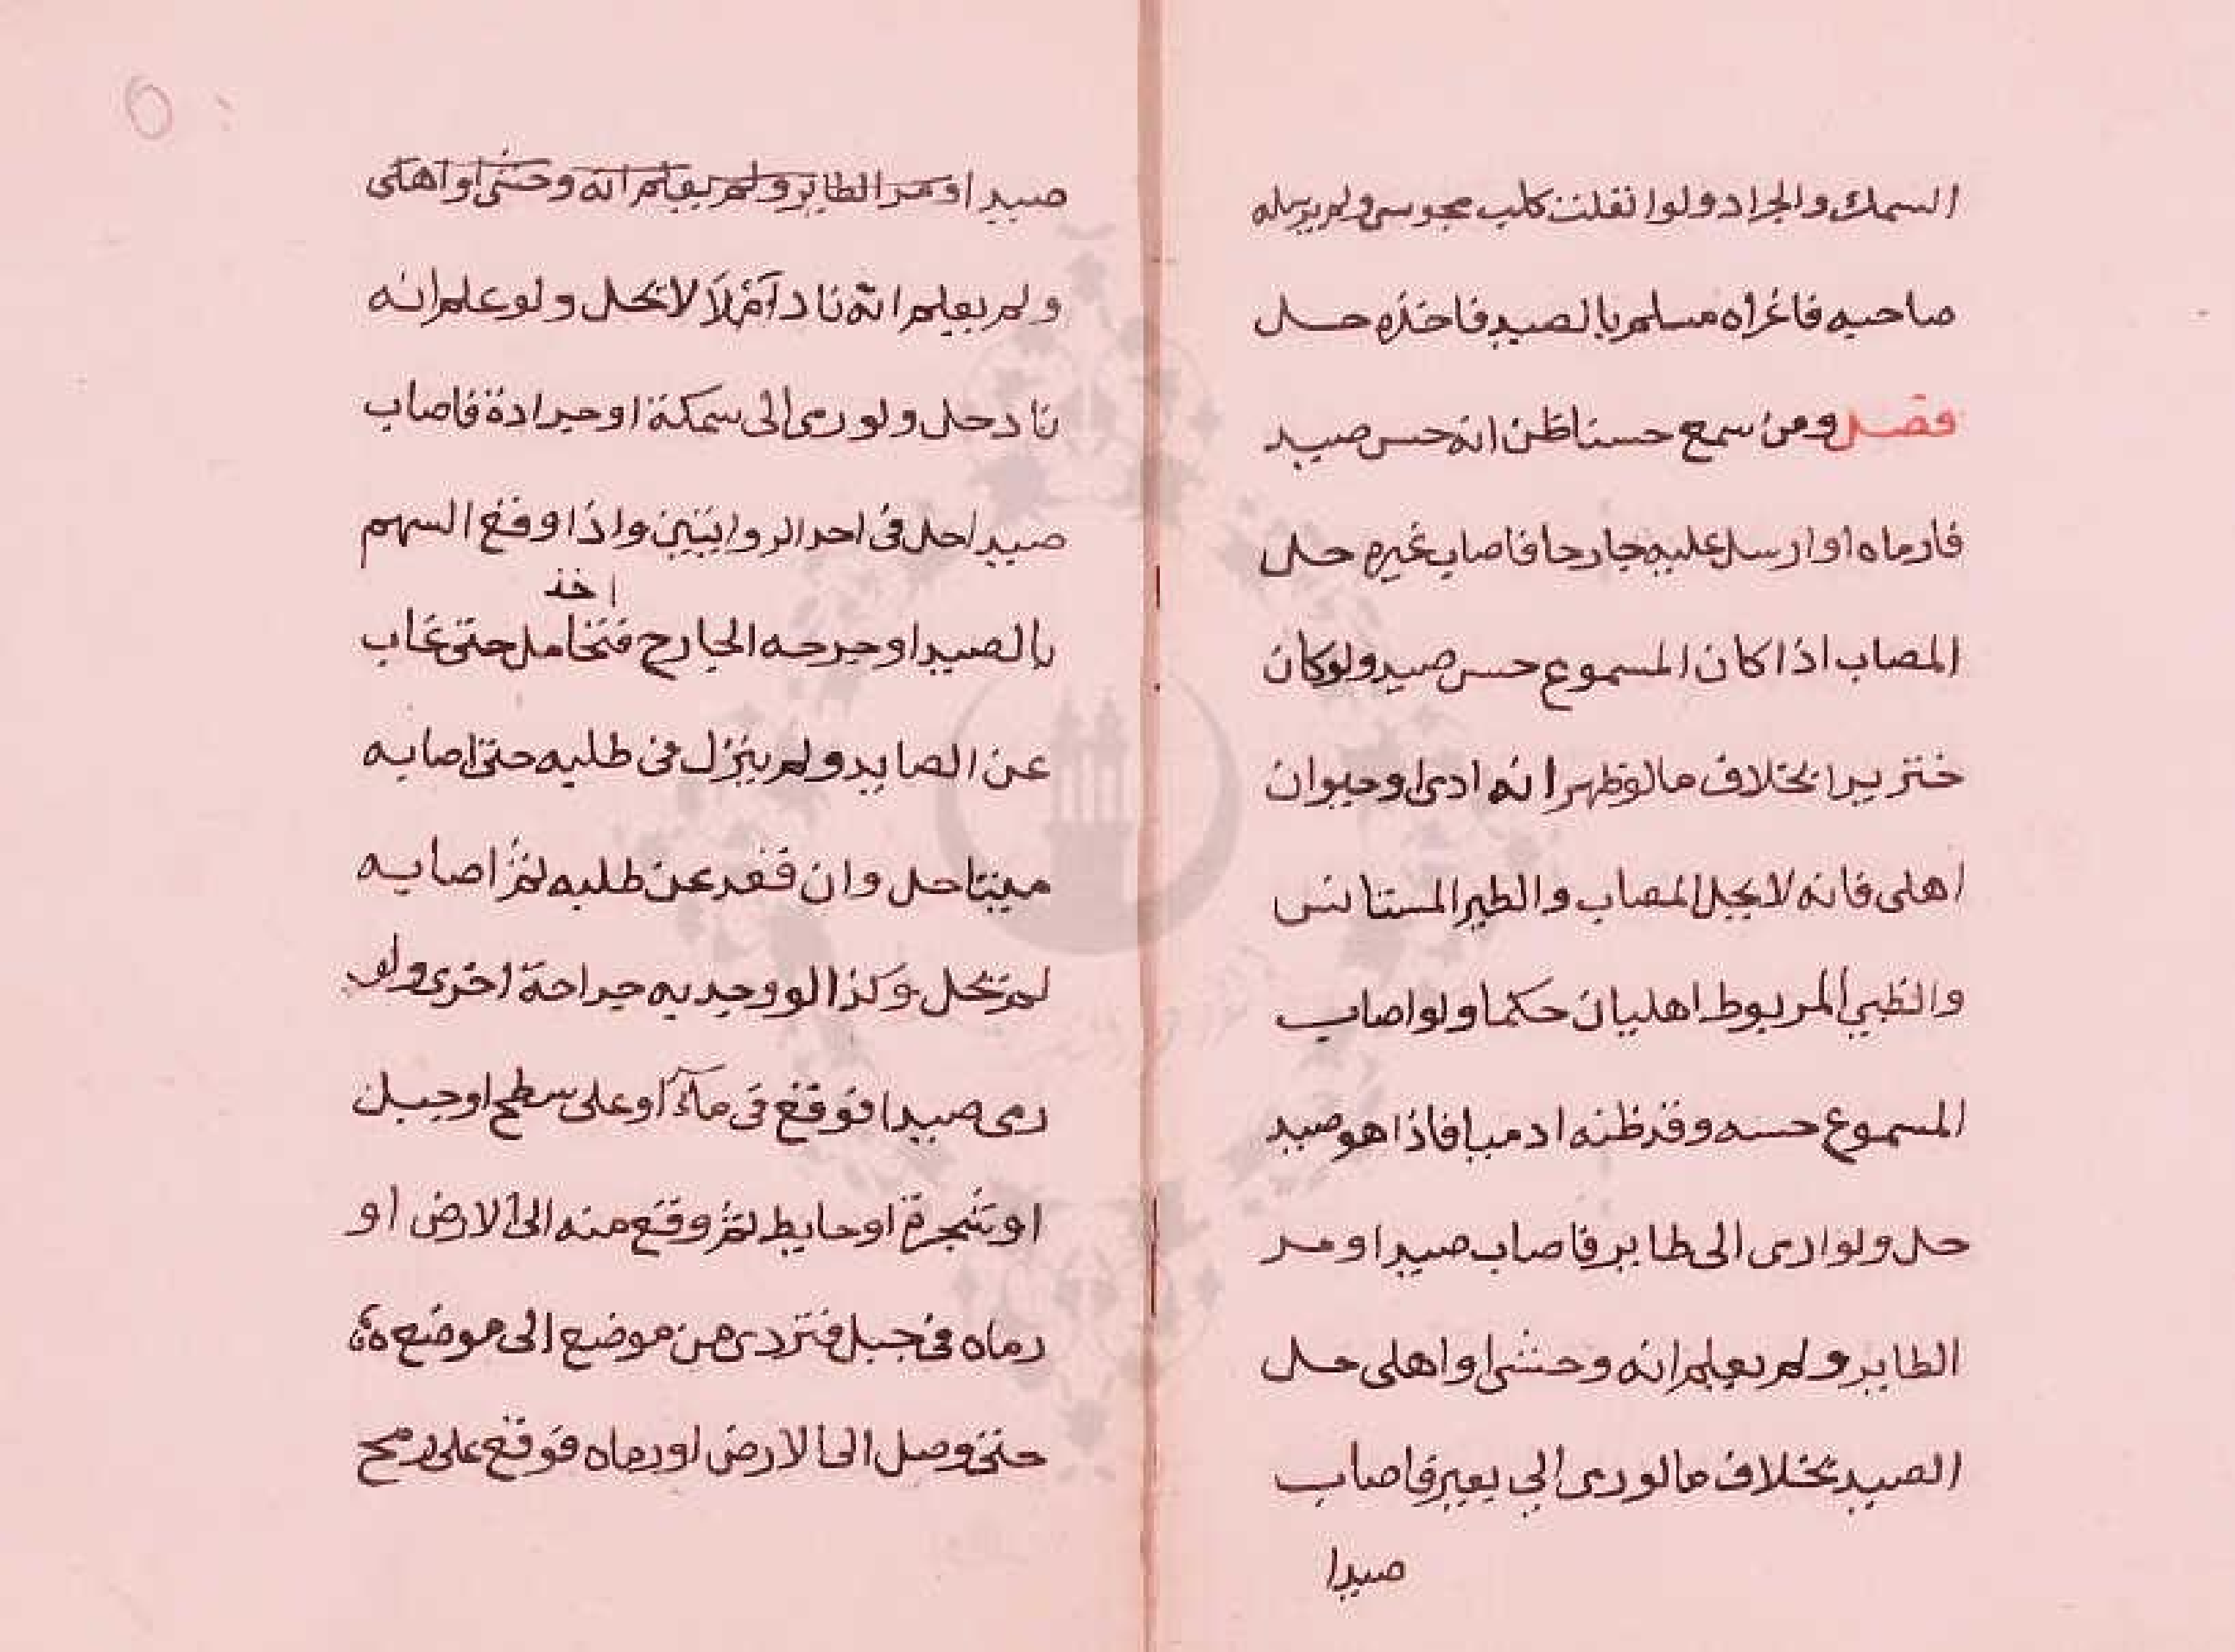 السمك والجراد ولو انفلت كلب مجوسى ولم يرسله
صاحبه فاغراه مسلم بالصيد فاخذه حل
فصل ومن سمع حسنا ظن انه حس صيد
فارماه او ارسل عليه جارحا فاصاب غيره حل
المصاب اذا كان المسموع حس صيد ولو كان
خنزيرا بخلاف ما لو ظهر انه ادمى او حيوان
اهلى فانه لا يحل المصاب والطير المستانس
والظبي المربوط اهليان حكما ولو اصاب
المسموع حسه وقد ظنه ادميا فاذا هو صيد
حل ولو ارمى الى طاير فاصاب صيدا او مر
الطاير ولم يعلم انه وحشى او اهلى حل
الصيد بخلاف ما لو رمى الي بعير فاصاب
صيدا
صيدا او مر الطاير ولم يعلم انه وحشى او اهلى
ولم يعلم انه ناد ام لا لا يحل ولو علم انه
ناد حل ولو رمى الى سمكة او جرادة فاصاب
صيدا حل فى احد الروايتين واذا وقع السهم
اخذ
بالصيد او جرحه الجارح فتحامل حتى غاب
عن الصايد ولم ينزل فى طلبه حتى اصابه
ميتا حل وان قعد عن طلبه ثم اصابه
لم يحل وكذا لو وجد به جراحة اخرى ولو
رمى صيدا فوقع فى مآء او على سطح او جبل
او شجرة او حايط ثم وقع منه الى الارض او
رماه فى جبل فتردى من موضع الى موضع
حتى وصل الى الارض او رماه فوقع على رمح